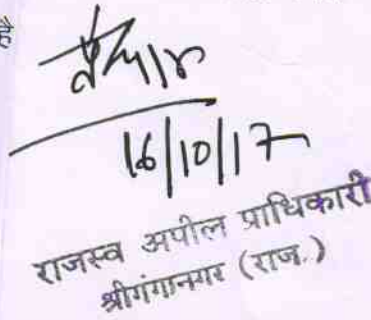 है
16/10/17
राजस्व अपील प्राधिकारी
श्रीगंगानगर (राज.)